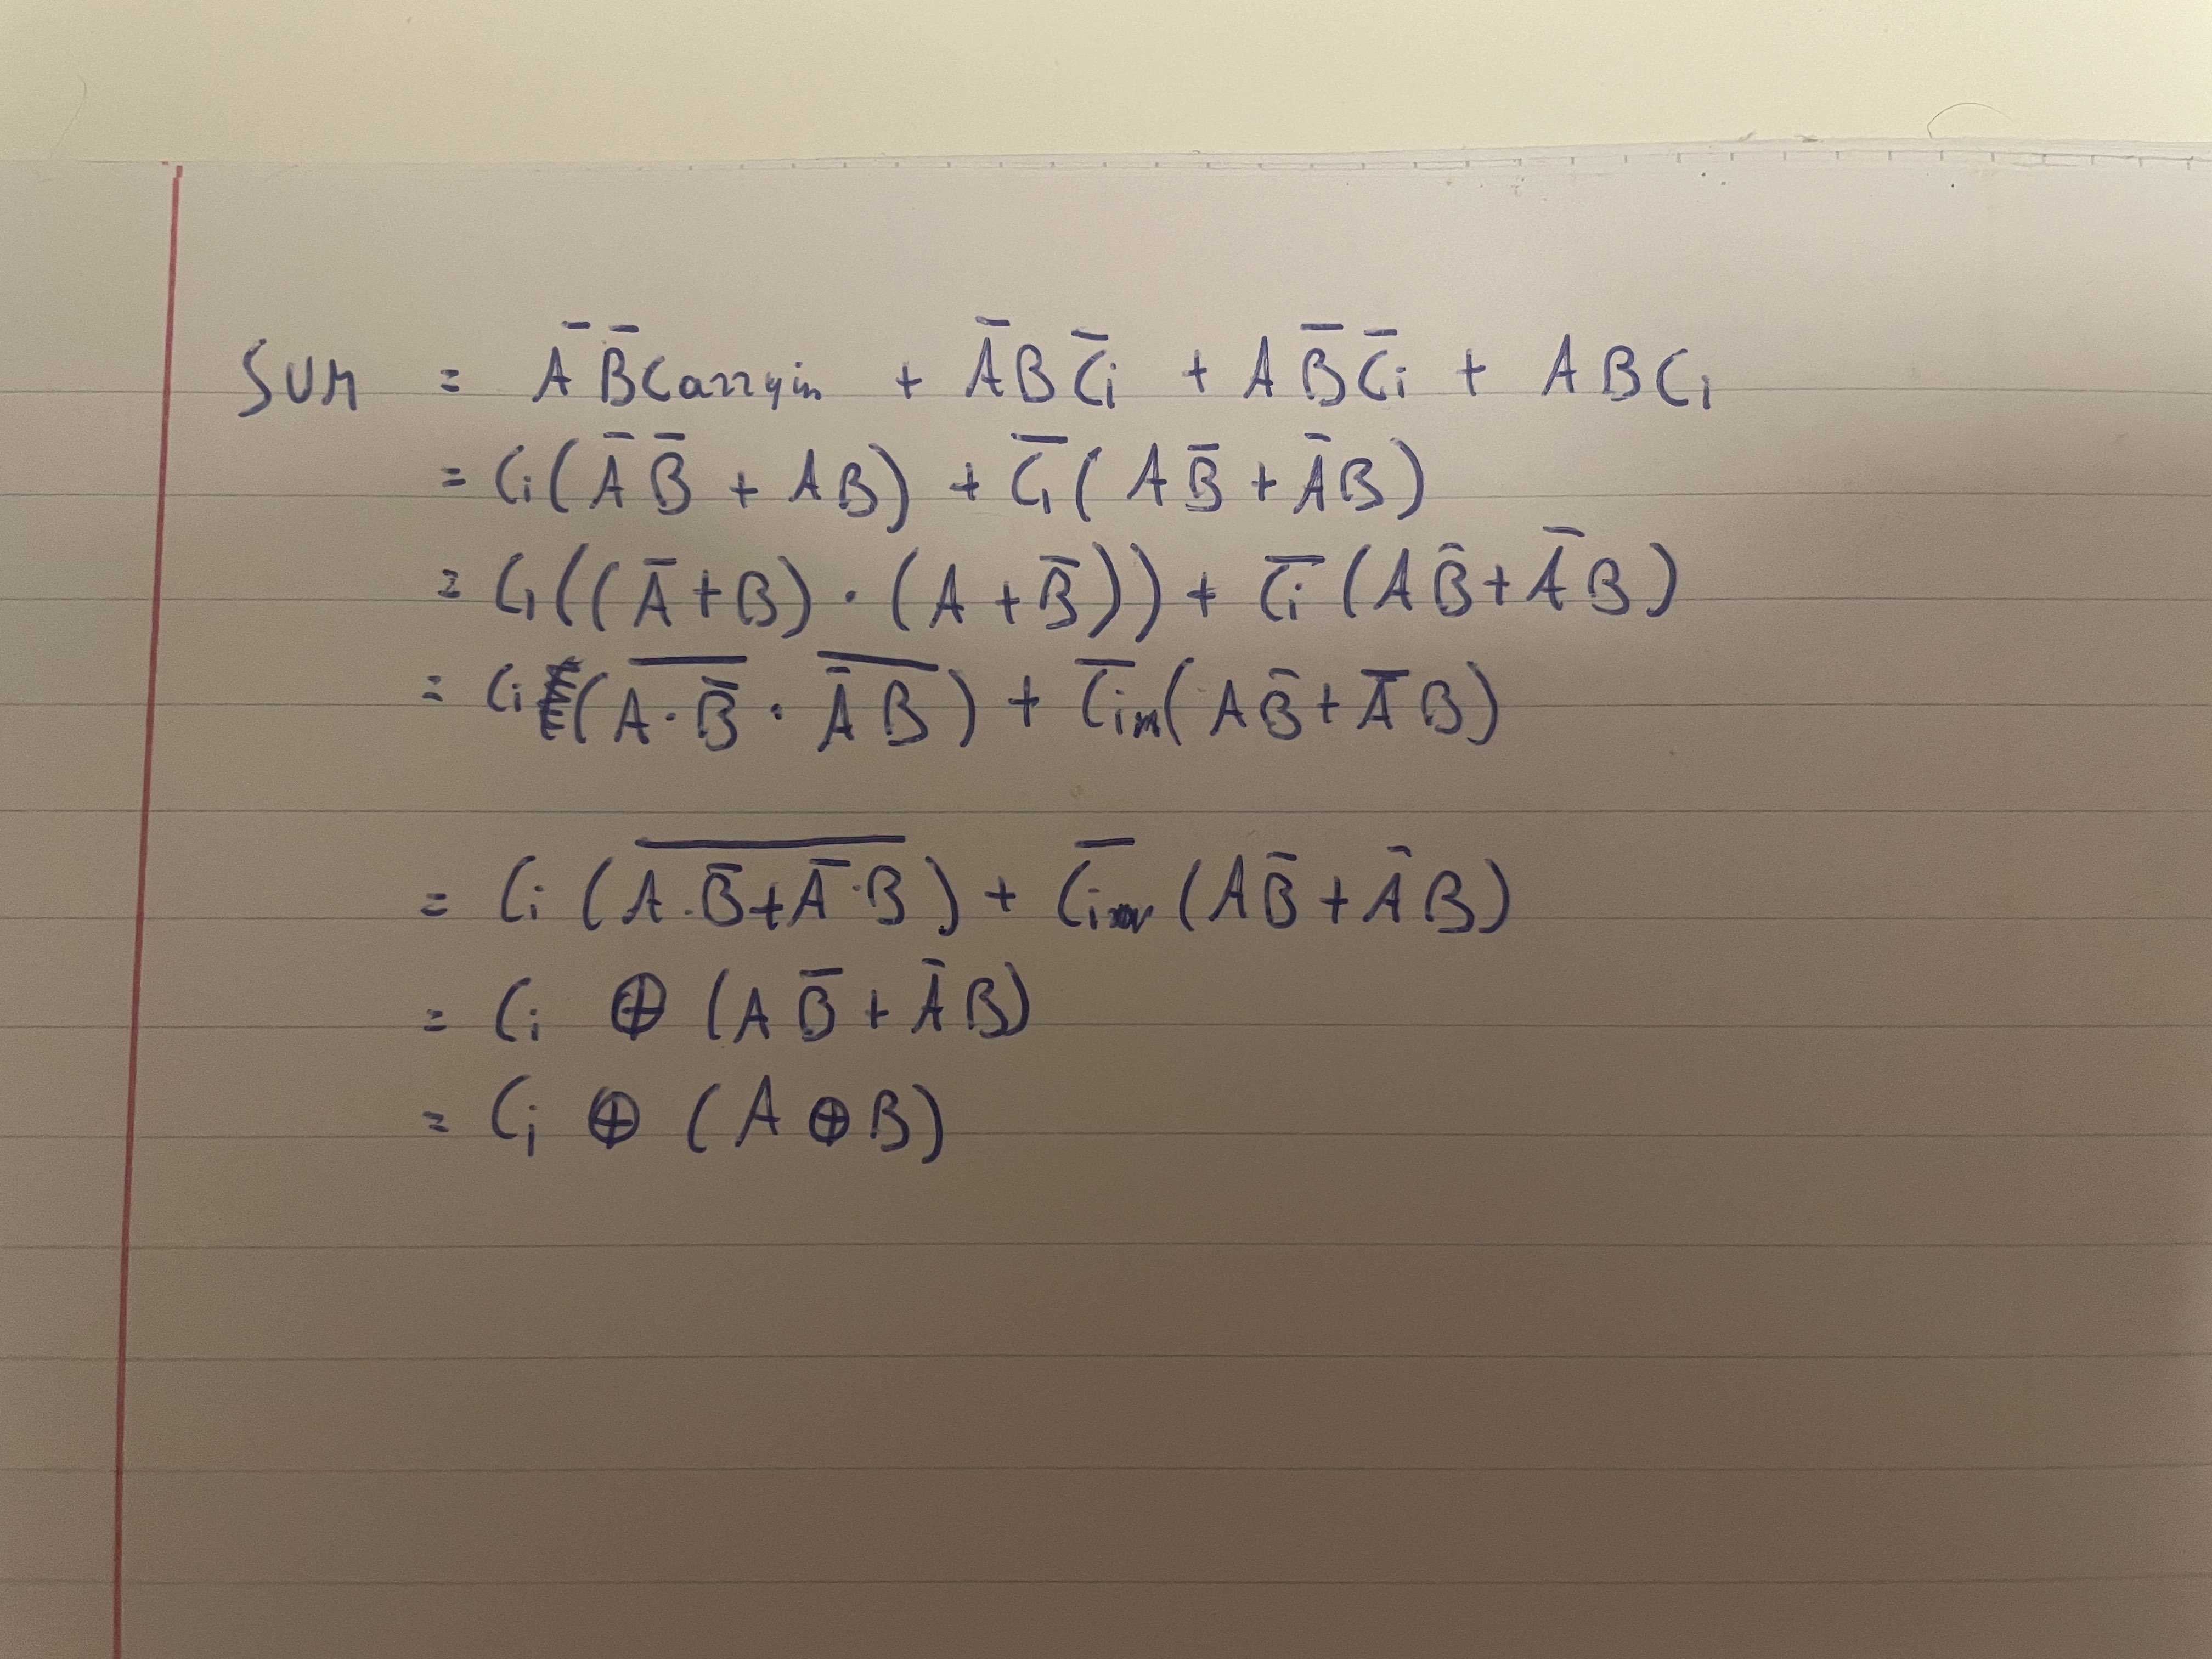 SUM = A̅ B̅ Carryin + A̅ B C̅i̅ + A B̅ C̅i̅ + A B Ci
= Ci ( A̅ B̅ + A B ) + C̅i̅ ( A B̅ + A̅ B )
= Ci ( ( A̅ + B ) · ( A + B̅ ) ) + C̅i̅ ( A B̅ + A̅ B )
= Ci ( \overline{A · B̅} · \overline{A̅ B} ) + \overline{Cin} ( A B̅ + A̅ B )
= Ci ( \overline{A · B̅ + A̅ · B} ) + \overline{Ci} ( A B̅ + A̅ B )
= Ci ⊕ ( A B̅ + A̅ B )
= Ci ⊕ ( A ⊕ B )